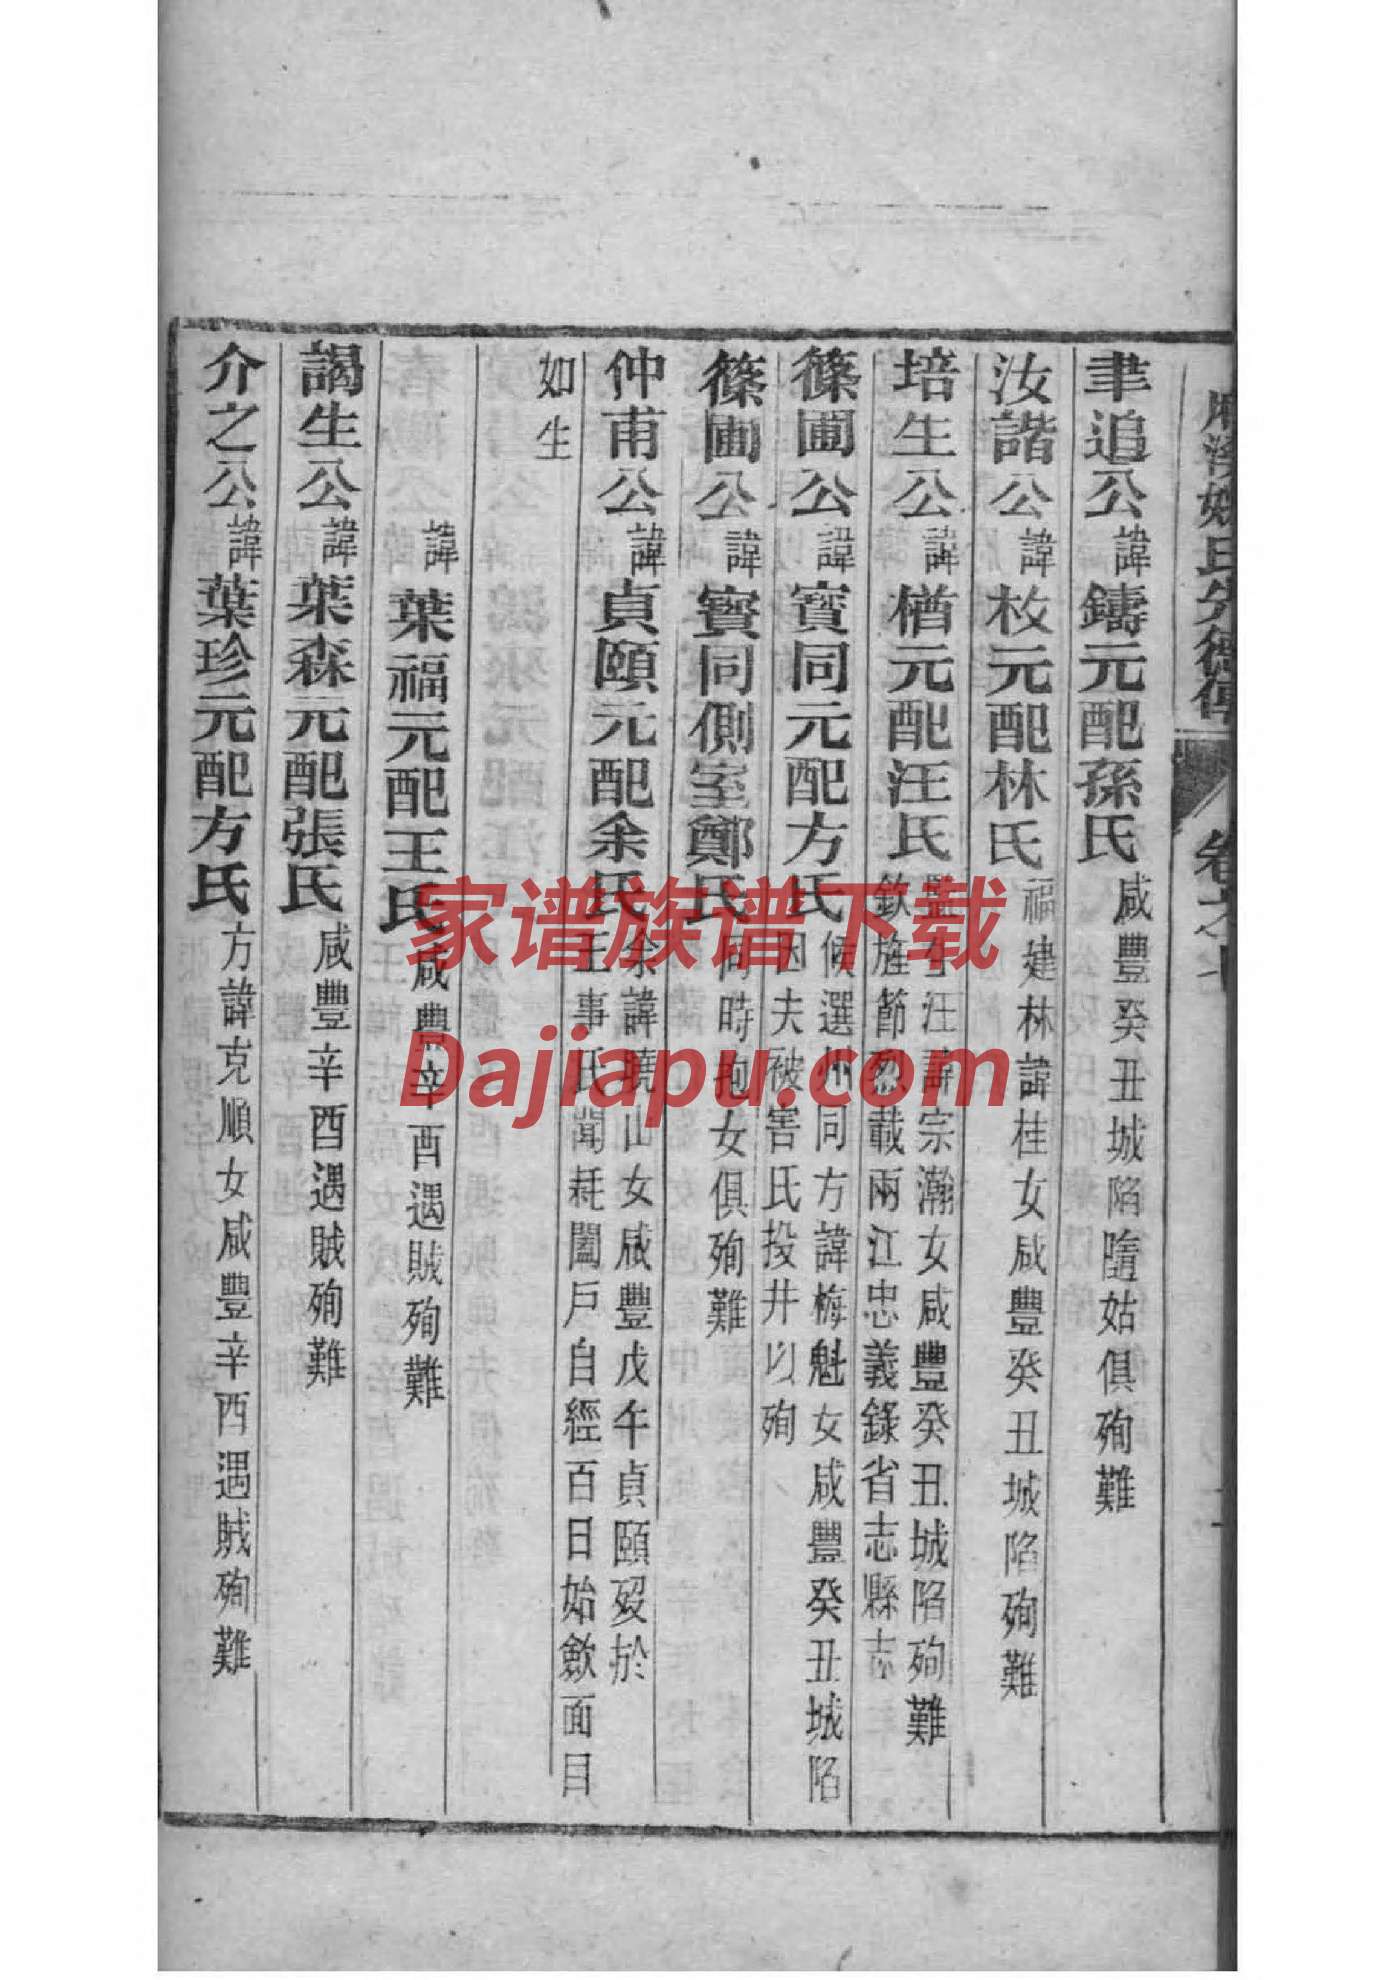 麻溪姚氏先德傳 卷之七
聿追公諱鑄元配孫氏 咸豐癸丑城陷隨姑俱殉難
汝諧公諱枚元配林氏 福建林諱桂女咸豐癸丑城陷殉難
培生公諱楢元配汪氏 汪諱宗瀚女咸豐癸丑城陷殉難
欽旌節烈載兩江忠義錄省志縣志
篠圃公諱寶同元配方氏 候選州同方諱梅魁女咸豐癸丑城陷
因夫被害氏投井以殉
篠圃公諱寶同側室鄭氏 同時抱女俱殉難
仲甫公諱貞頤元配余氏 余諱曉山女咸豐戊午貞頤歿於
王事氏聞耗闔戶自經百日始歛面目
如生
諱葉福元配王氏 咸豐辛酉遇賊殉難
謁生公諱葉森元配張氏 咸豐辛酉遇賊殉難
介之公諱葉珍元配方氏 方諱克順女咸豐辛酉遇賊殉難
家谱族谱下载
Dajiapu.com